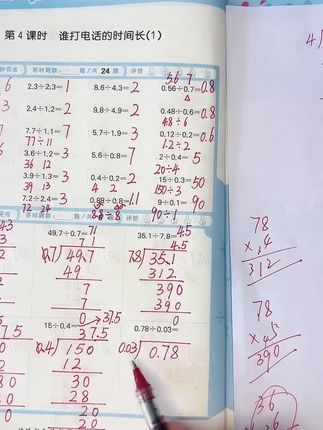 第 4 课时 谁打电话的时间长(1)
茶时题数: 题 / 共 24 题 评价
2.3÷2.3=1 8.6÷4.3=2 0.56÷0.7=0.8
5.6 7
2.4÷1.2=2 9.8÷4.9=2 0.48÷0.6=0.8
4.8÷6
7.7÷1.1=7 5.7÷1.9=3 0.12÷0.2=0.6
77÷11 1.2÷2
3.6÷1.2=3 5.6÷0.8=7 2÷0.4=5
36 12 20÷4
3.9÷1.3=3 0.4÷0.2=2 15÷0.3=50
39 13 4 2 150÷3
7.2÷2.4=3 0.88÷0.8=1.1 9÷0.1=90
72 24 88÷8 90÷1
茶时题数: 题 / 共 24 题 评价
49.7÷0.7=71 35.1÷7.8=4.5
71 4.5
0.7 49.7 7.8 35.1
49 312
7 390
7 390
0 0
15÷0.4=37.5 0.78÷0.03=
37.5
0.4 150 0.03 0.78
12
30
28
20
20
78
× 4
312
78
390
36